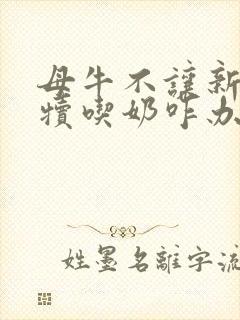 母牛不讓新
犢喫奶咋办
姓墨名離字流